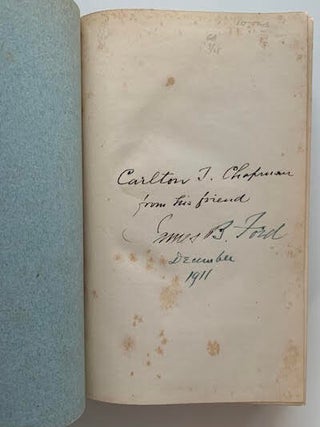 Carlton T. Chapman
from his friend
James B. Ford
December
1911